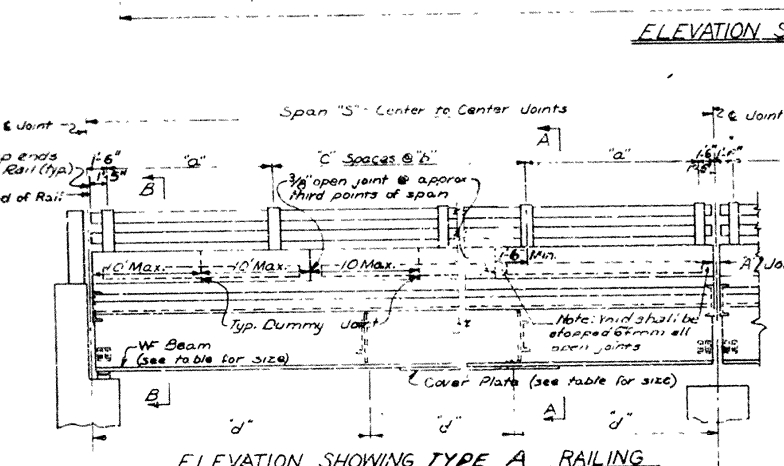 ELEVATION S
Span "S" - Center to Center Joints
℄ Joint
2
2 ℄ Joint
p ends
Rail (typ)
d of Rail
1'-6"
1'-5"
"a"
"C" Spaces @ "b"
A
"a"
1'-6"
1'-5"
B
3/8" open joint @ approx
third points of span
1'-6" Min.
10' Max.
10' Max.
10 Max.
A
Typ. Dummy Joint
Note: Void shall be
stopped 6" from all
open joints
WF Beam
(see table for size)
Cover Plate (see table for size)
B
A
"d"
"d"
"d"
ELEVATION SHOWING TYPE A RAILING